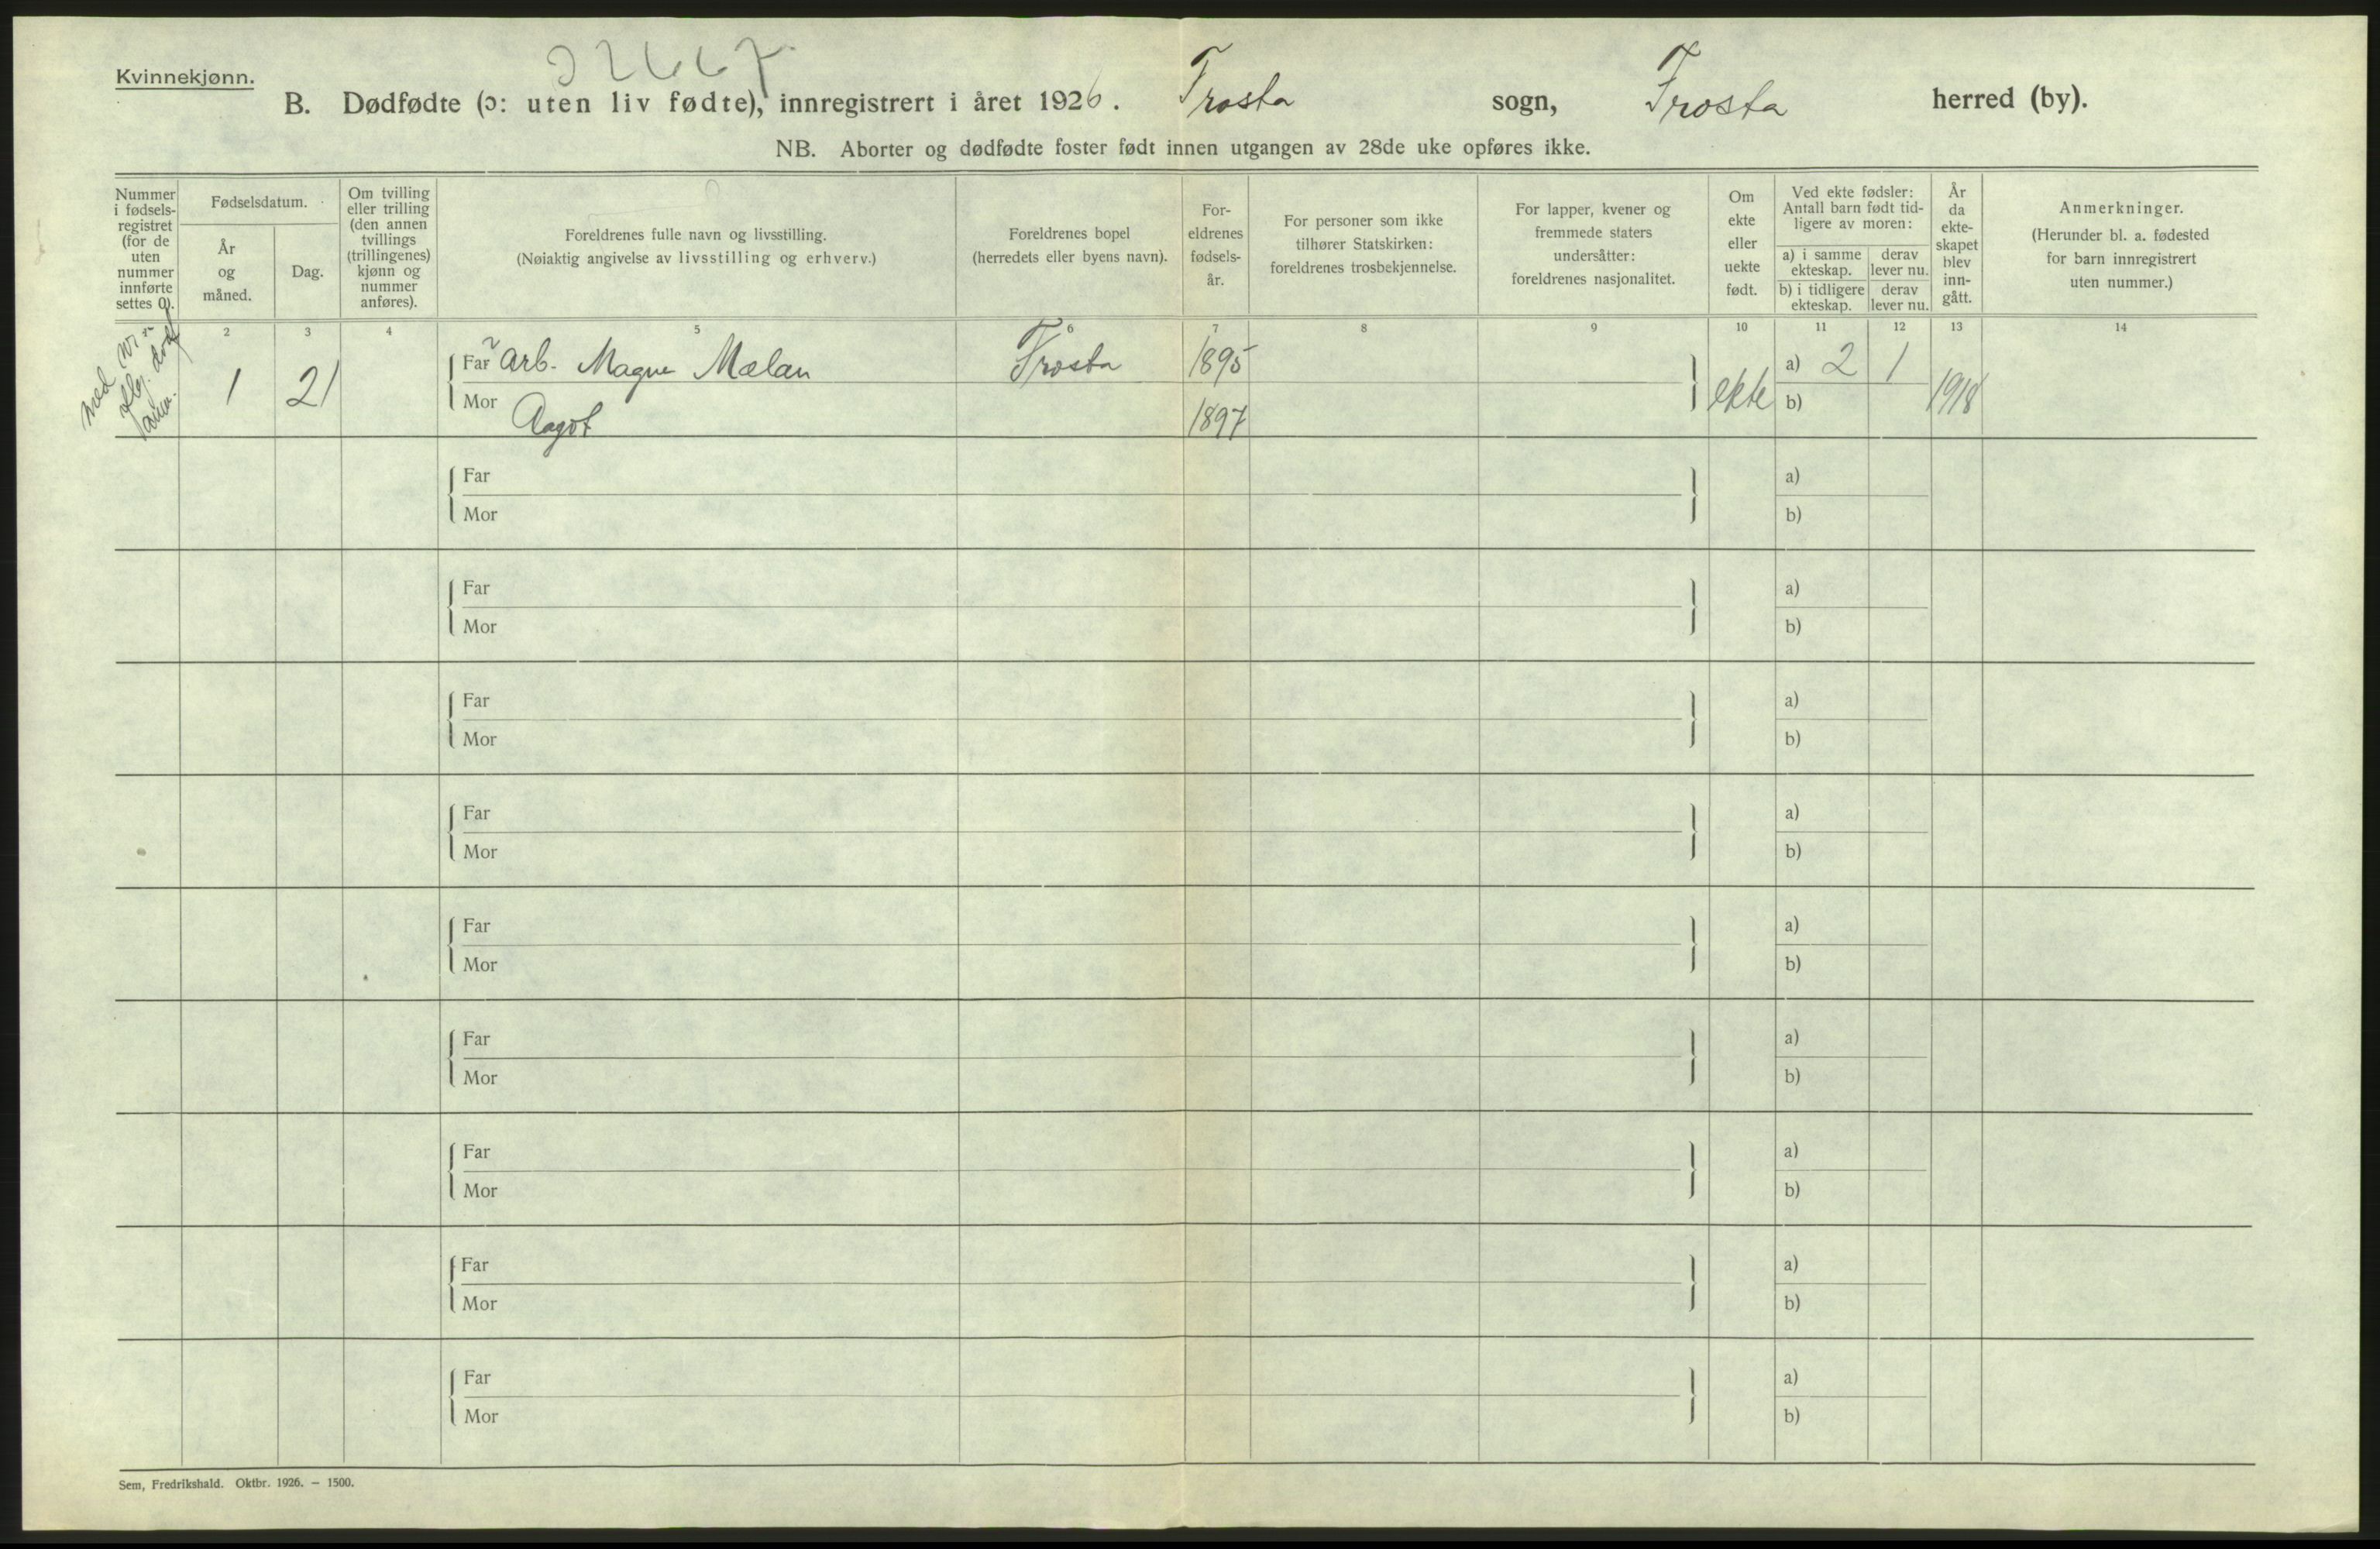 Kvinnekjønn.
B. Dødfødte (ɔ: uten liv fødte), innregistrert i året 1926. Frosta sogn, Frosta herred (by).
NB. Aborter og dødfødte foster født innen utgangen av 28de uke opføres ikke.
Nummer i fødsels-registret (for de uten nummer innførte settes 0).
Fødselsdatum.
År og måned.
Dag.
Om tvilling eller trilling (den annen tvillings (trillingenes) kjønn og nummer anføres).
Foreldrenes fulle navn og livsstilling.
(Nøiaktig angivelse av livsstilling og erhverv.)
Foreldrenes bopel
(herredets eller byens navn).
For-eldrenes fødsels-år.
For personer som ikke tilhører Statskirken: foreldrenes trosbekjennelse.
For lapper, kvener og fremmede staters undersåtter: foreldrenes nasjonalitet.
Om ekte eller uekte født.
Ved ekte fødsler: Antall barn født tid-ligere av moren:
a) i samme ekteskap.
derav lever nu.
b) i tidligere ekteskap.
derav lever nu.
År da ekte-skapet blev inn-gått.
Anmerkninger.
(Herunder bl. a. fødested for barn innregistrert uten nummer.)
2 3 4 5 6 7 8 9 10 11 12 13 14
1 21 Far Arb. Magne Mælan Frosta 1895 ekte a) 2 1 1918
Mor Aagot 1897 b)
Far a)
Mor b)
Far a)
Mor b)
Far a)
Mor b)
Far a)
Mor b)
Far a)
Mor b)
Far a)
Mor b)
Far a)
Mor b)
Far a)
Mor b)
Far a)
Mor b)
Sem, Fredrikshald. Oktbr. 1926. — 1500.